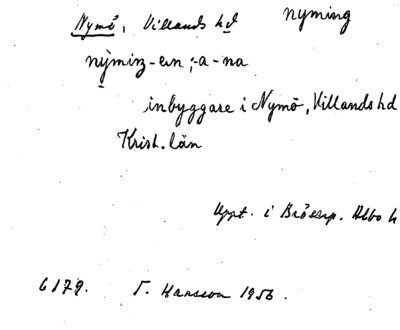 Nymö, Villands hd nyming
nymiŋ-en ; -a -na
inbyggare i Nymö, Villands hd
Krist. län
Uppt. i Brösarp. Albo h
6179. T. Hansson 1956.